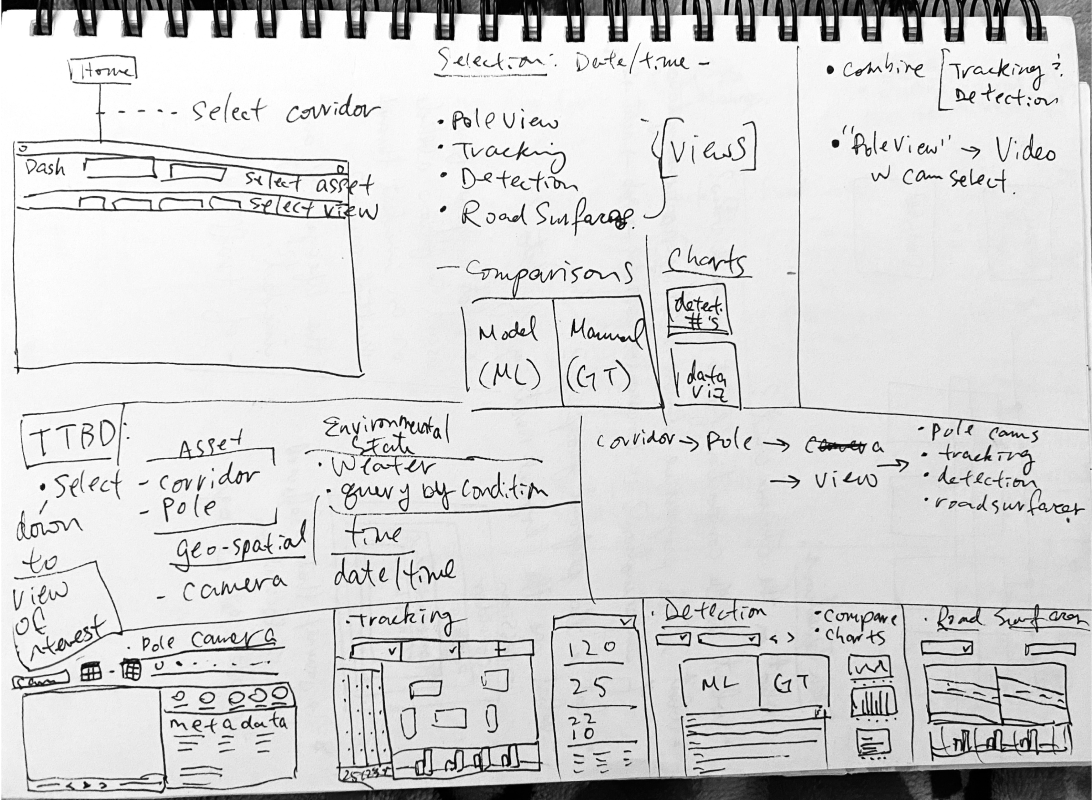 Home
Select corridor
Dash
Select asset
Select view
Selection: Date/time -
• Pole View
• Tracking
• Detection
• Road Surfaces
[Views]
- Comparisons
Model
(ML)
Manual
(GT)
Charts
detect.
#'s
data
viz
• Combine [Tracking &
Detection
• "Pole View" → Video
w cam select.
TTBD:
• Select
down
to
view
of
interest
Asset
- corridor
- Pole
geo-spatial
- camera
Environmental
State
• Weater
• query by condition
time
date/time
Corridor → Pole → camera
→ view →
• Pole cams
• tracking
• detection
• roadsurfacer
• Pole Camera
metadata
• Tracking
+
120
25
22
10
• Detection
< >
ML
GT
• Compare
• Charts
• Road Surfaces
< < > >